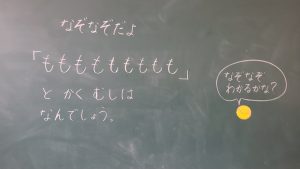 なぞなぞだよ
「ももももももももも」
と かく むしは
なんでしょう。
なぞなぞ
わかるかな?